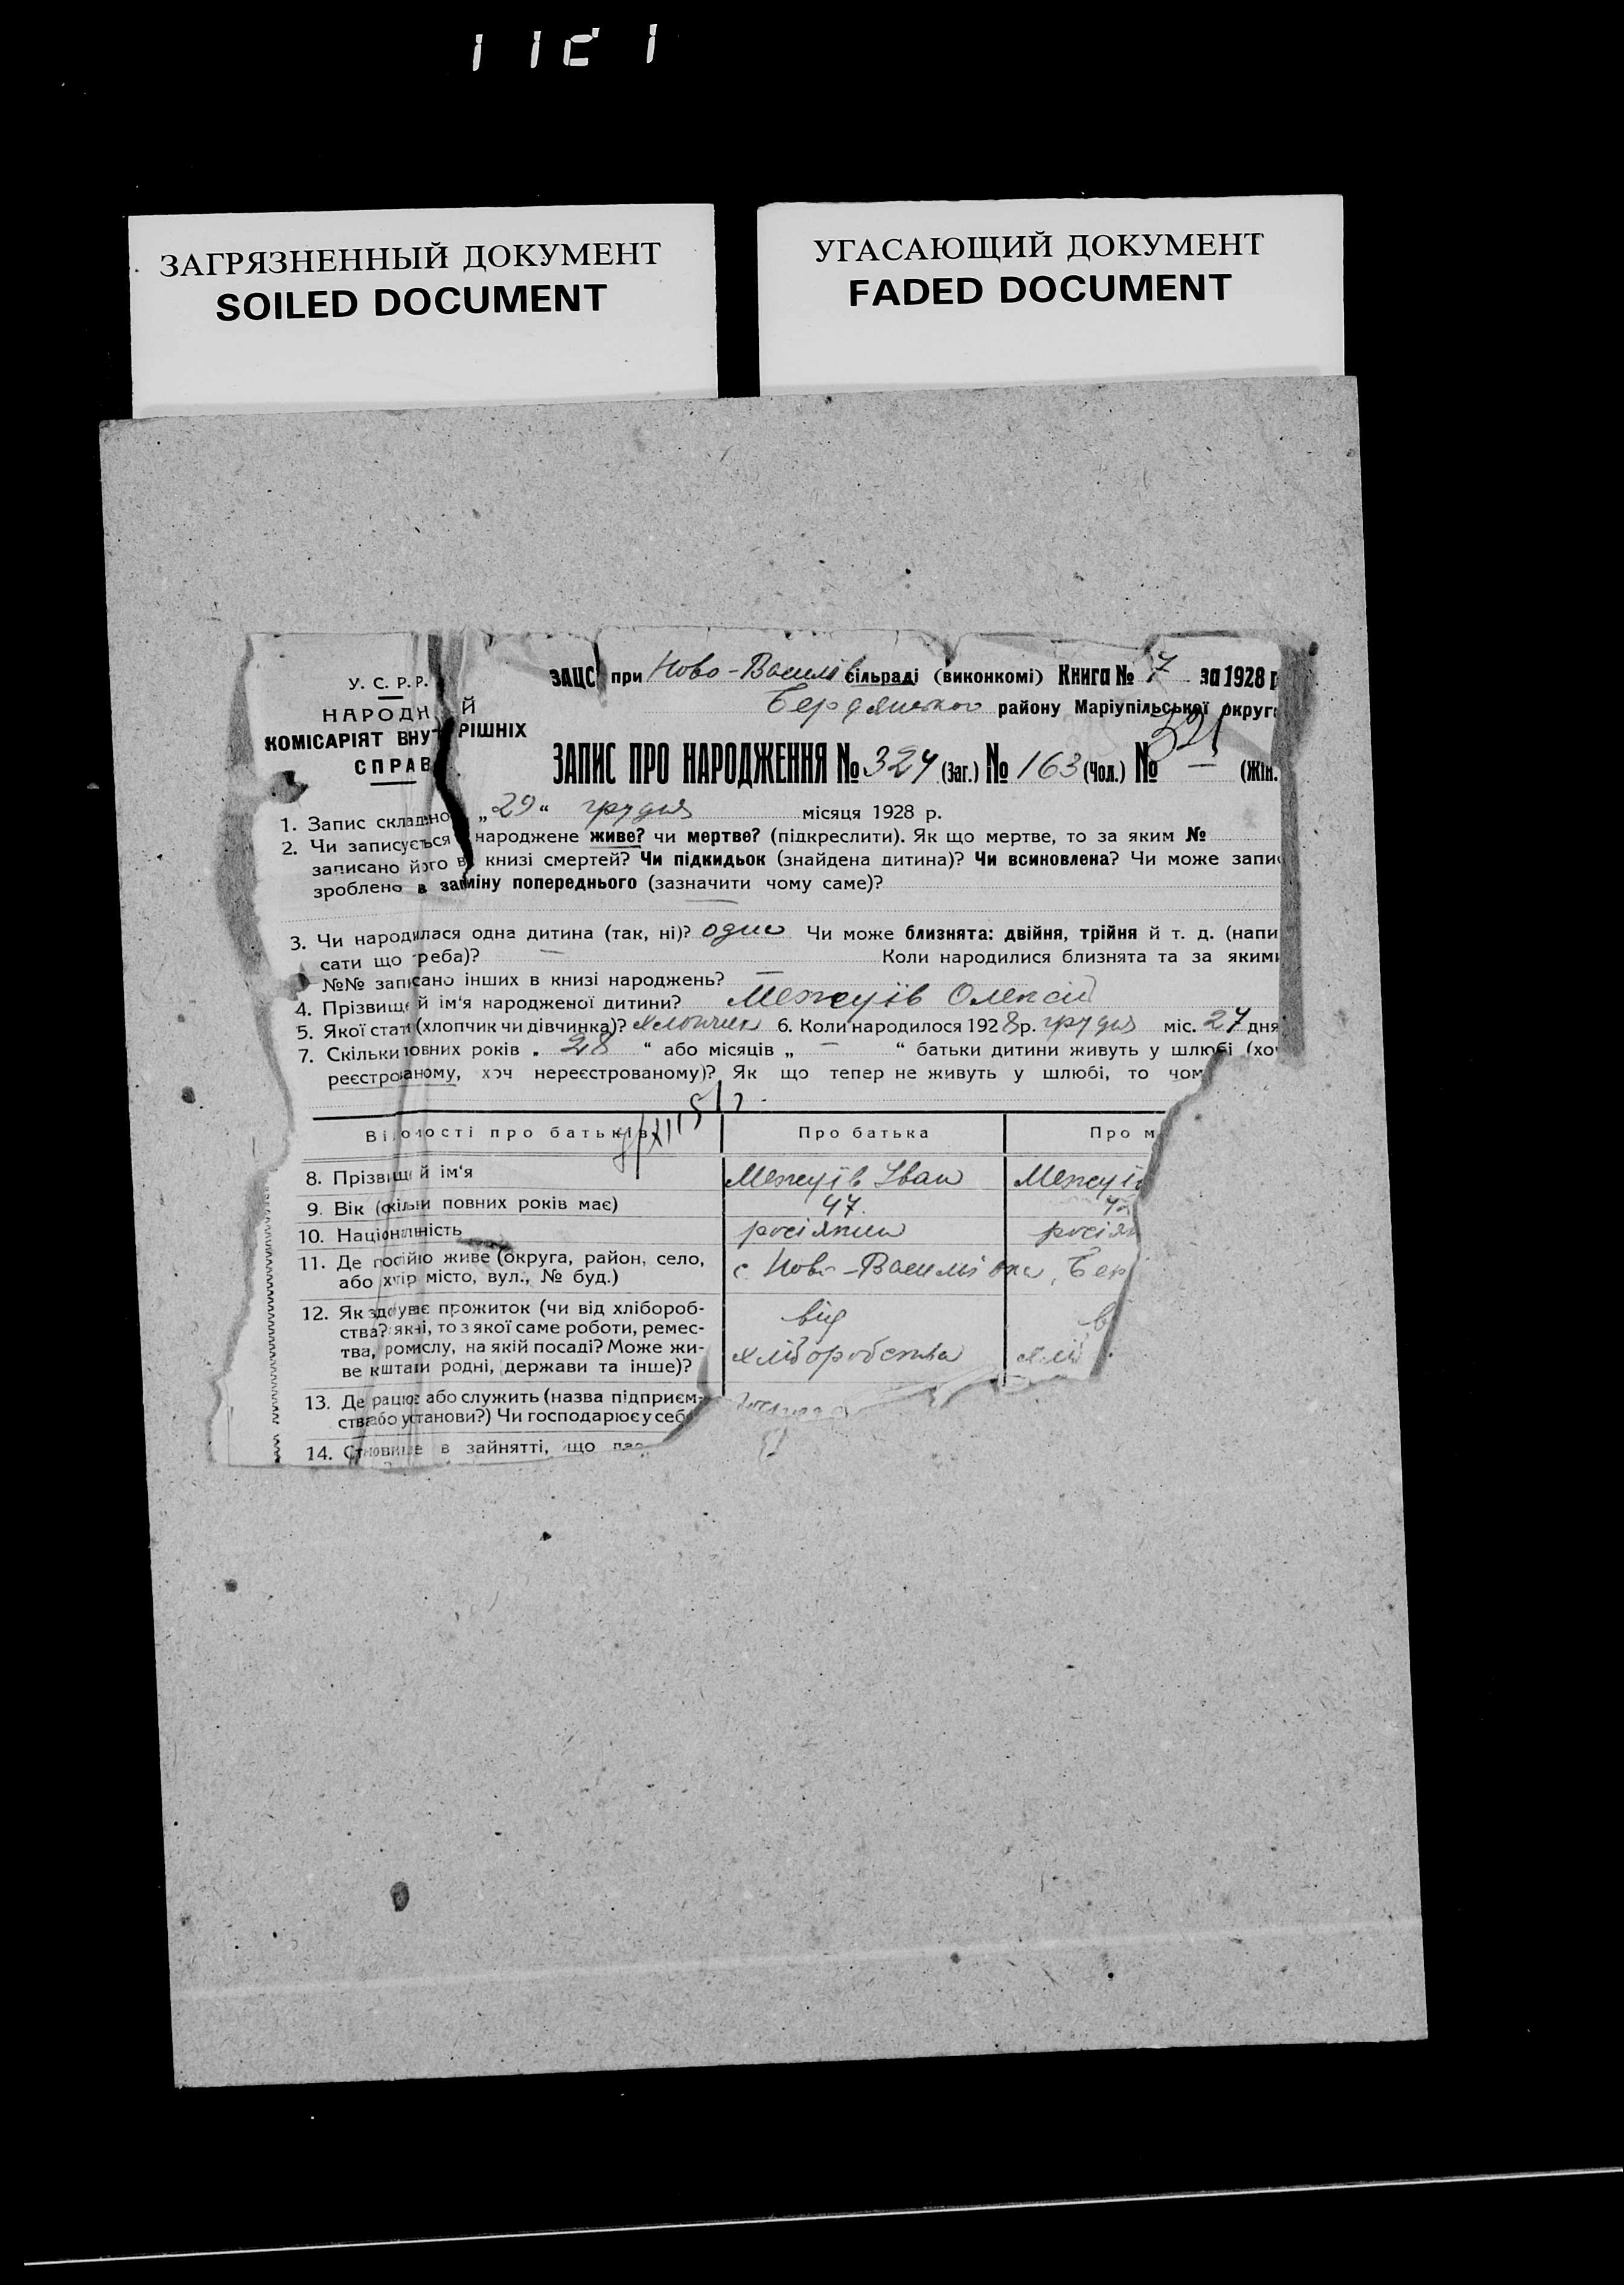 ЗАГРЯЗНЕННЫЙ ДОКУМЕНТ
SOILED DOCUMENT
УГАСАЮЩИЙ ДОКУМЕНТ
FADED DOCUMENT
У. С. Р. Р.
НАРОДН Й
КОМІСАРІЯТ ВНУТРІШНІХ
СПРАВ
ЗАЦС при Ново-Василів сільраді (виконкомі) Книга № 7 за 1928 р
Бердянського району Маріупільської округ
321
ЗАПИС ПРО НАРОДЖЕННЯ № 324 (заг.) № 163 (чол.) № — (жін.
1. Запис складено „29“ грудня місяця 1928 р.
2. Чи записується народжене живе? чи мертве? (підкреслити). Як що мертве, то за яким №
записано його в книзі смертей? Чи підкидьок (знайдена дитина)? Чи всиновлена? Чи може запи
зроблено в заміну попереднього (зазначити чому саме)? —
3. Чи народилася одна дитина (так, ні)? одна Чи може близнята: двійня, трійня й т. д. (напи
сати що треба)? — Коли народилися близнята та за якими
№№ записано інших в книзі народжень? —
4. Прізвище й ім'я народженої дитини? Межуїв Олексій
5. Якої статі (хлопчик чи дівчинка)? хлопчик 6. Коли народилося 1928 р. грудня міс. 27 дня
7. Скільки повних років „ 28 “ або місяців „ — “ батьки дитини живуть у шлюбі (хо
реєстрованому, хоч нереєстрованому)? Як що тепер не живуть у шлюбі, то чом
Відомості про батьків Про батька Про м
8. Прізвище й ім'я Межуїв Іван Межуї
9. Вік (скільки повних років має) 47. 4
10. Національність росіянин росіян
11. Де постійно живе (округа, район, село, с. Ново-Василівка, Бер
або хутір місто, вул., № буд.)
12. Як здобуває прожиток (чи від хлібороб- від в
ства? як ні, то з якої саме роботи, ремес-
тва, ромислу, на якій посаді? Може жи- хліборобства хлі
ве коштами родні, держави та інше)?
13. Де працює або служить (назва підприєм-
ства або установи?) Чи господарює у себе
14. Становище в зайнятті, що